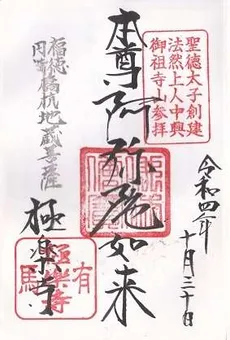 聖徳太子創建
法然上人中興
御祖寺山参拝
令和四年
十月三十日
本尊阿弥陀如来
福徳
円満橋杭地蔵菩薩
極楽寺
有馬
極楽寺